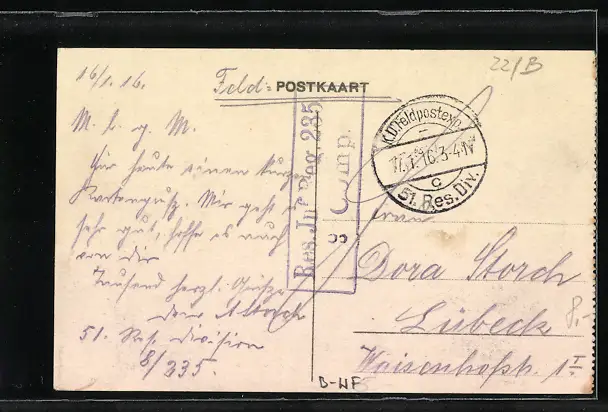 16/1. 16.
Feld- POSTKAART
22/B
M. l. g. M.
Für heute einen kurzen
Kartengruß. Mir geht es
sehr gut, hoffe es auch
von dir
Tausend herzl. Grüße
dein
51. Res. Division
8/235.
Res. Inf. Reg. 235
8 Comp.
K.D. Feldpostexp.
17.1.16. 3-4 N
c
51. Res. Div.
Frau
Dora Storch
Lübeck
Waisenhofstr. 1 I
8.-
B-WF